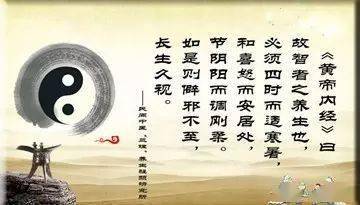 《黄帝内经》曰
故智者之养生也，
必须四时而适寒暑，
和喜怒而安居处，
节阴阳而调刚柔。
如是则僻邪不至，
长生久视。
——民间中医、养生研究所